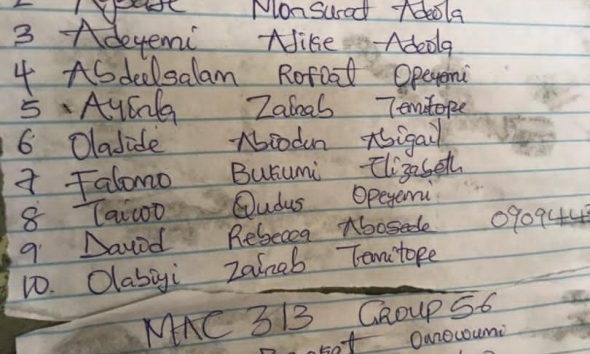 Monsurat Adeola
3 Adeyemi Ajike Adeola
4 Abdulsalam Rofiat Opeyemi
5 Ayinla Zainab Temitope
6 Oladide Abiodun Abigail
7 Falomo Bukumi Elizabeth
8 Taiwo Qudus Opeyemi
9 David Rebecca Abosede 090944
10. Olabiyi Zainab Temitope
MAC 313 GROUP 56
Omowumi